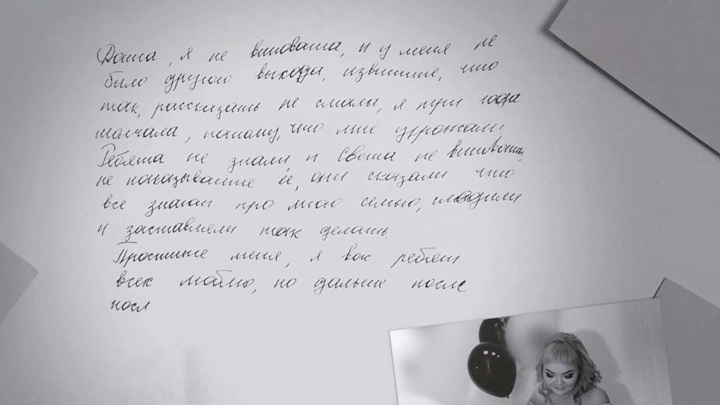 Даша, я не виновата, и у меня не
было другого выхода, извините, что
так, рассказать не смогла, я три года
молчала, потому, что мне угрожали
Ребята не знали и Света не виновата,
не наказывайте её, они сказали что
все знают про мою семью, следили
и заставляли так делать.
Простите меня, я вас ребят
всех люблю, но дальше после
посл